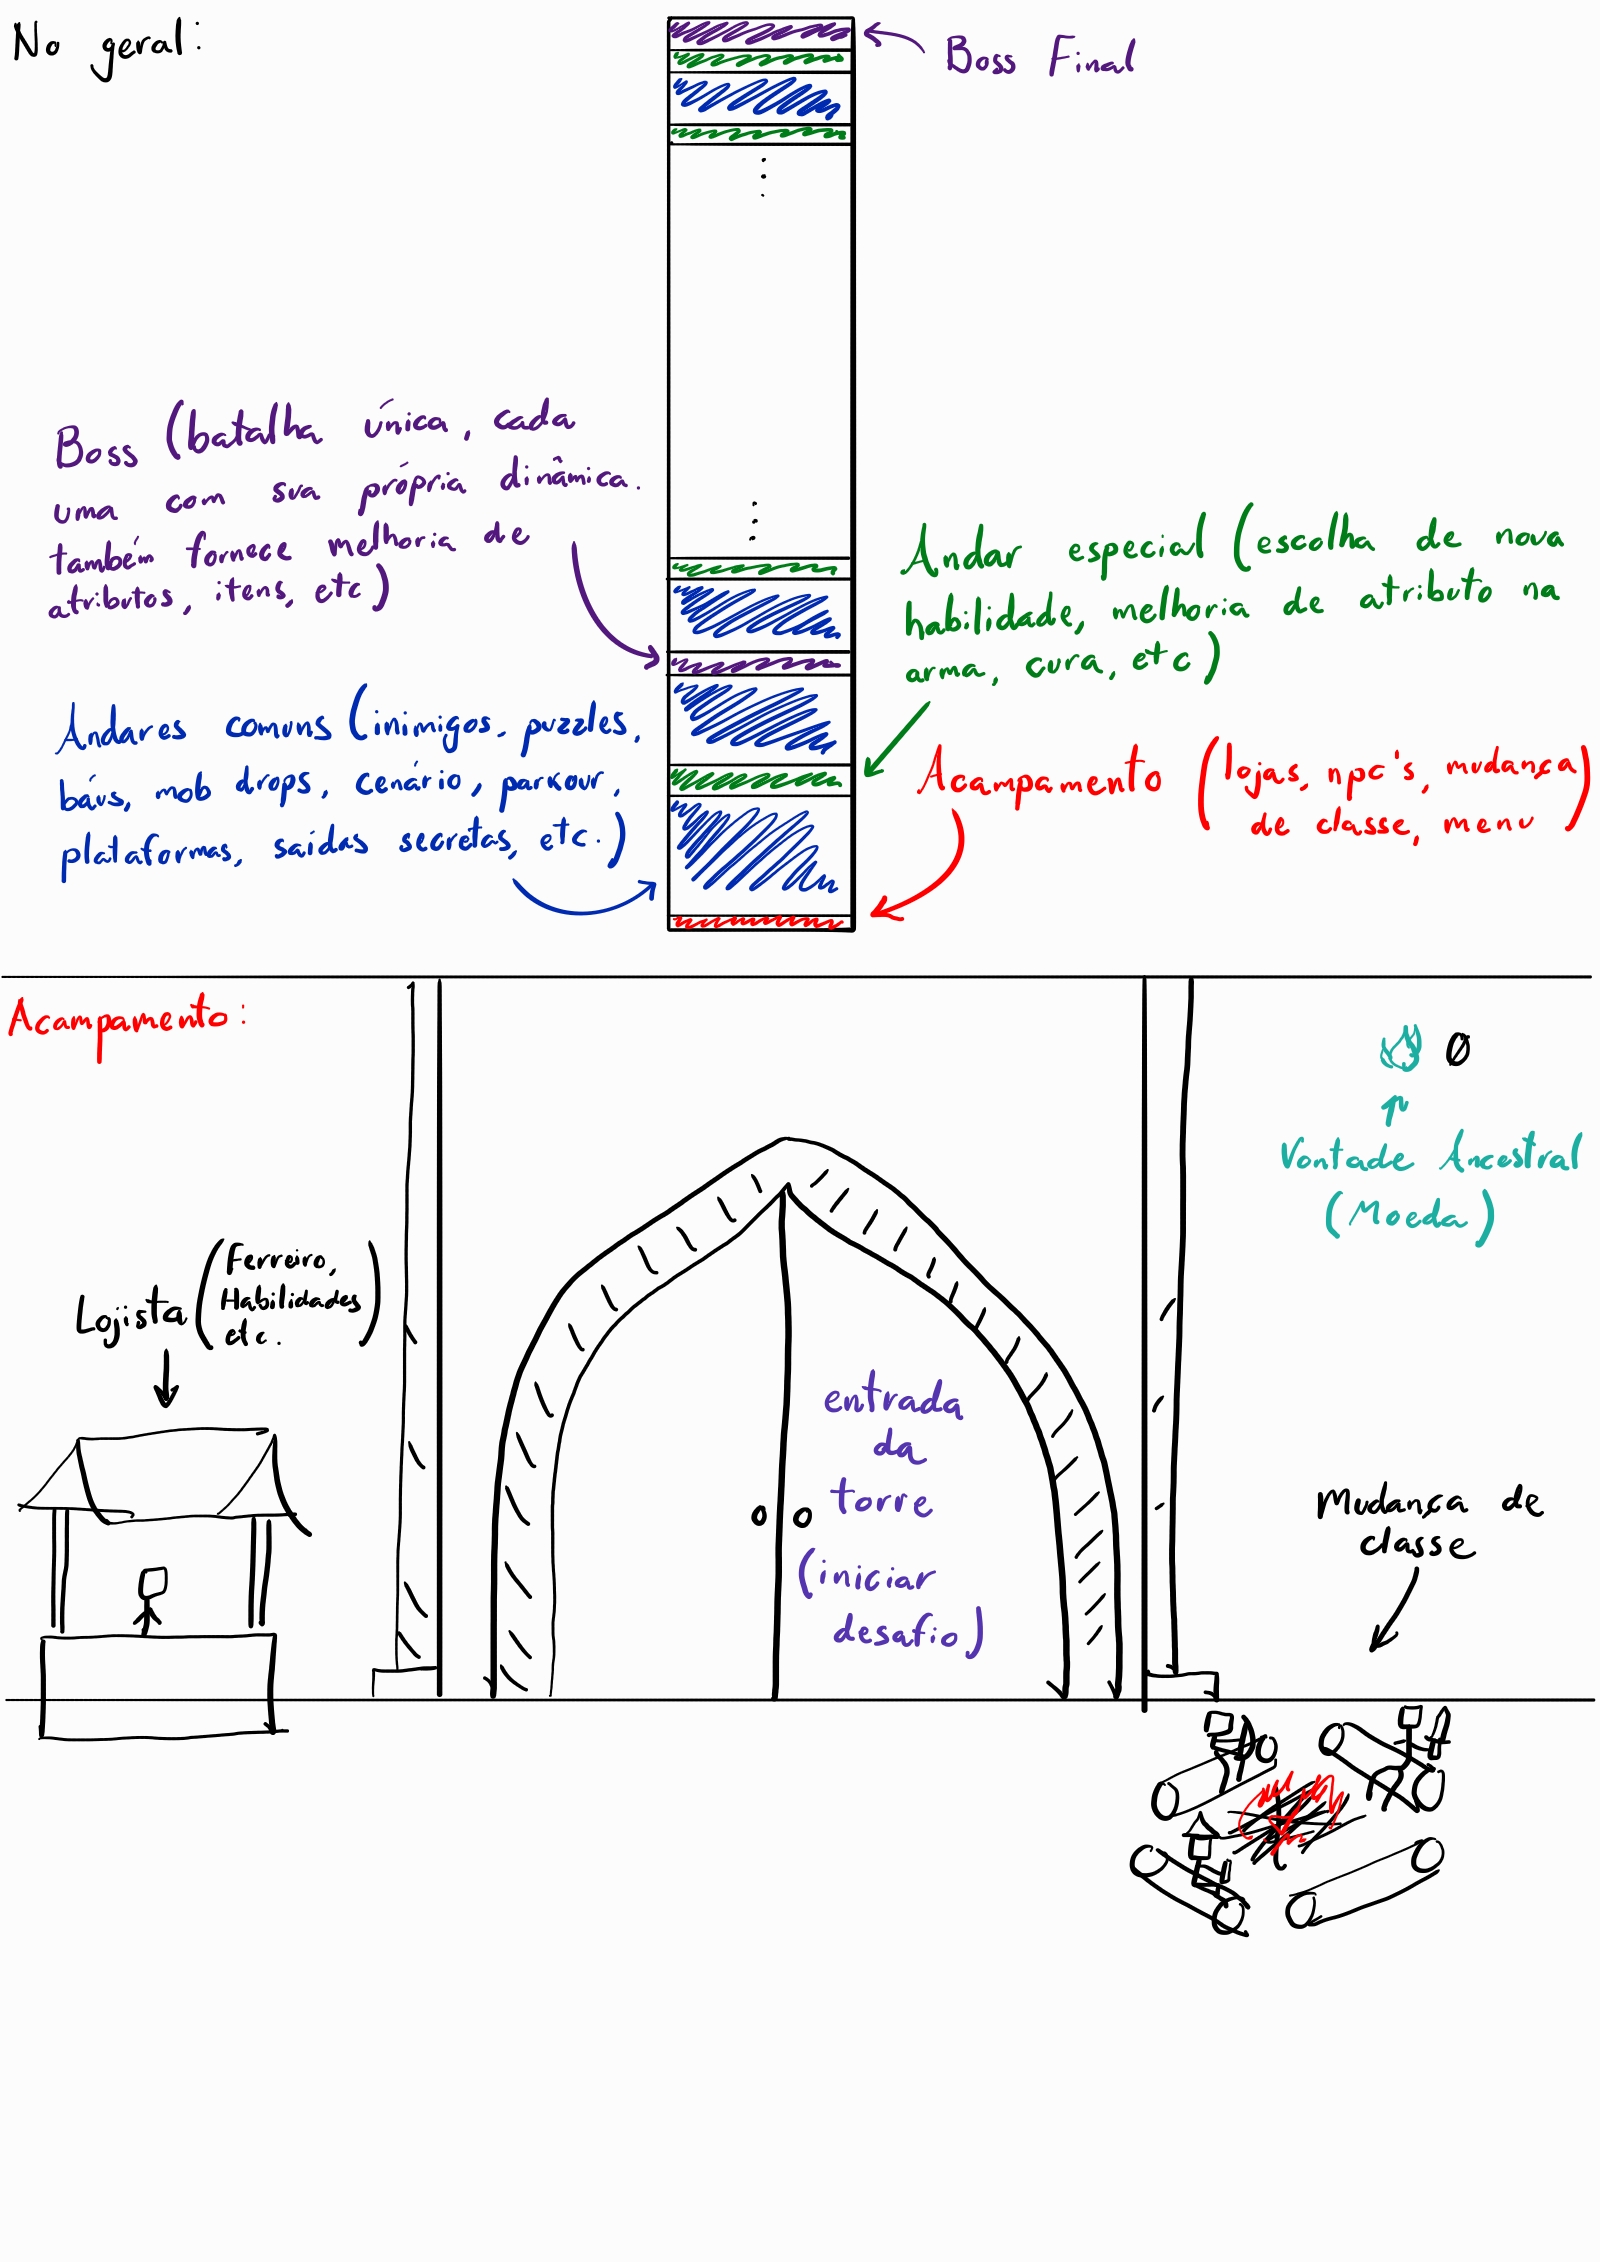 No geral:
Boss Final
Boss (batalha única, cada
uma com sua própria dinâmica.
também fornece melhoria de
atributos, itens, etc)
Andar especial (escolha de nova
habilidade, melhoria de atributo na
arma, cura, etc)
Andares comuns (inimigos, puzzles,
báus, mob drops, cenário, parkour,
plataformas, saídas secretas, etc.)
Acampamento (lojas, npc's, mudança
de classe, menu)
Acampamento:
0
Vontade Ancestral
(Moeda)
Lojista (Ferreiro,
Habilidades
etc.)
entrada
da
torre
(iniciar
desafio)
Mudança de
classe